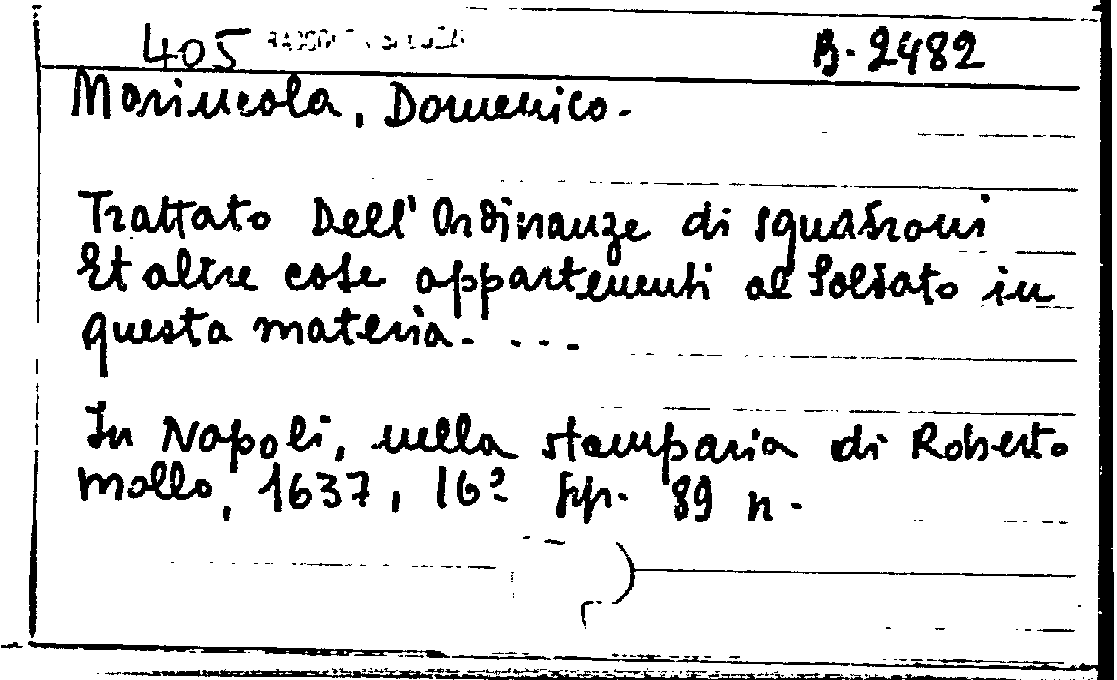 405 B. 2482
Marincola, Domenico.
Trattato Dell'Ordinanze di squadroni
Et altre cose appartenenti al Soldato in
questa materia. ...
In Napoli, nella stamparia di Roberto
Mollo, 1637, 16º pp. 89 n.